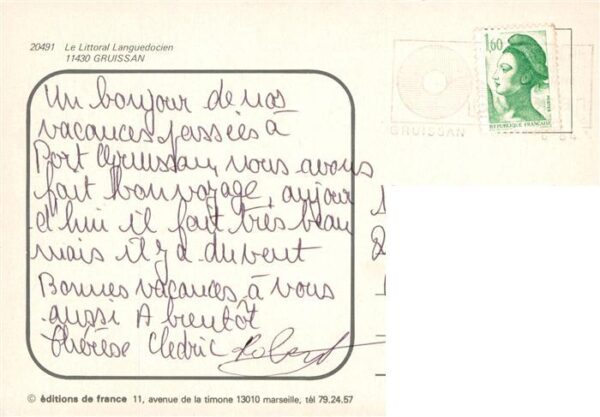 20491 Le Littoral Languedocien
11430 GRUISSAN
Un bonjour de nos
vacances passées à
Port Gruissan, nous avons
fait bon voyage, aujour
d'hui il fait très beau
mais il y a du vent
Bonnes vacances à vous
aussi A bientôt
Thérèse Cledric Robert
1,60
REPUBLIQUE FRANÇAISE
GRUISSAN
© éditions de france 11, avenue de la timone 13010 marseille, tél 79.24.57